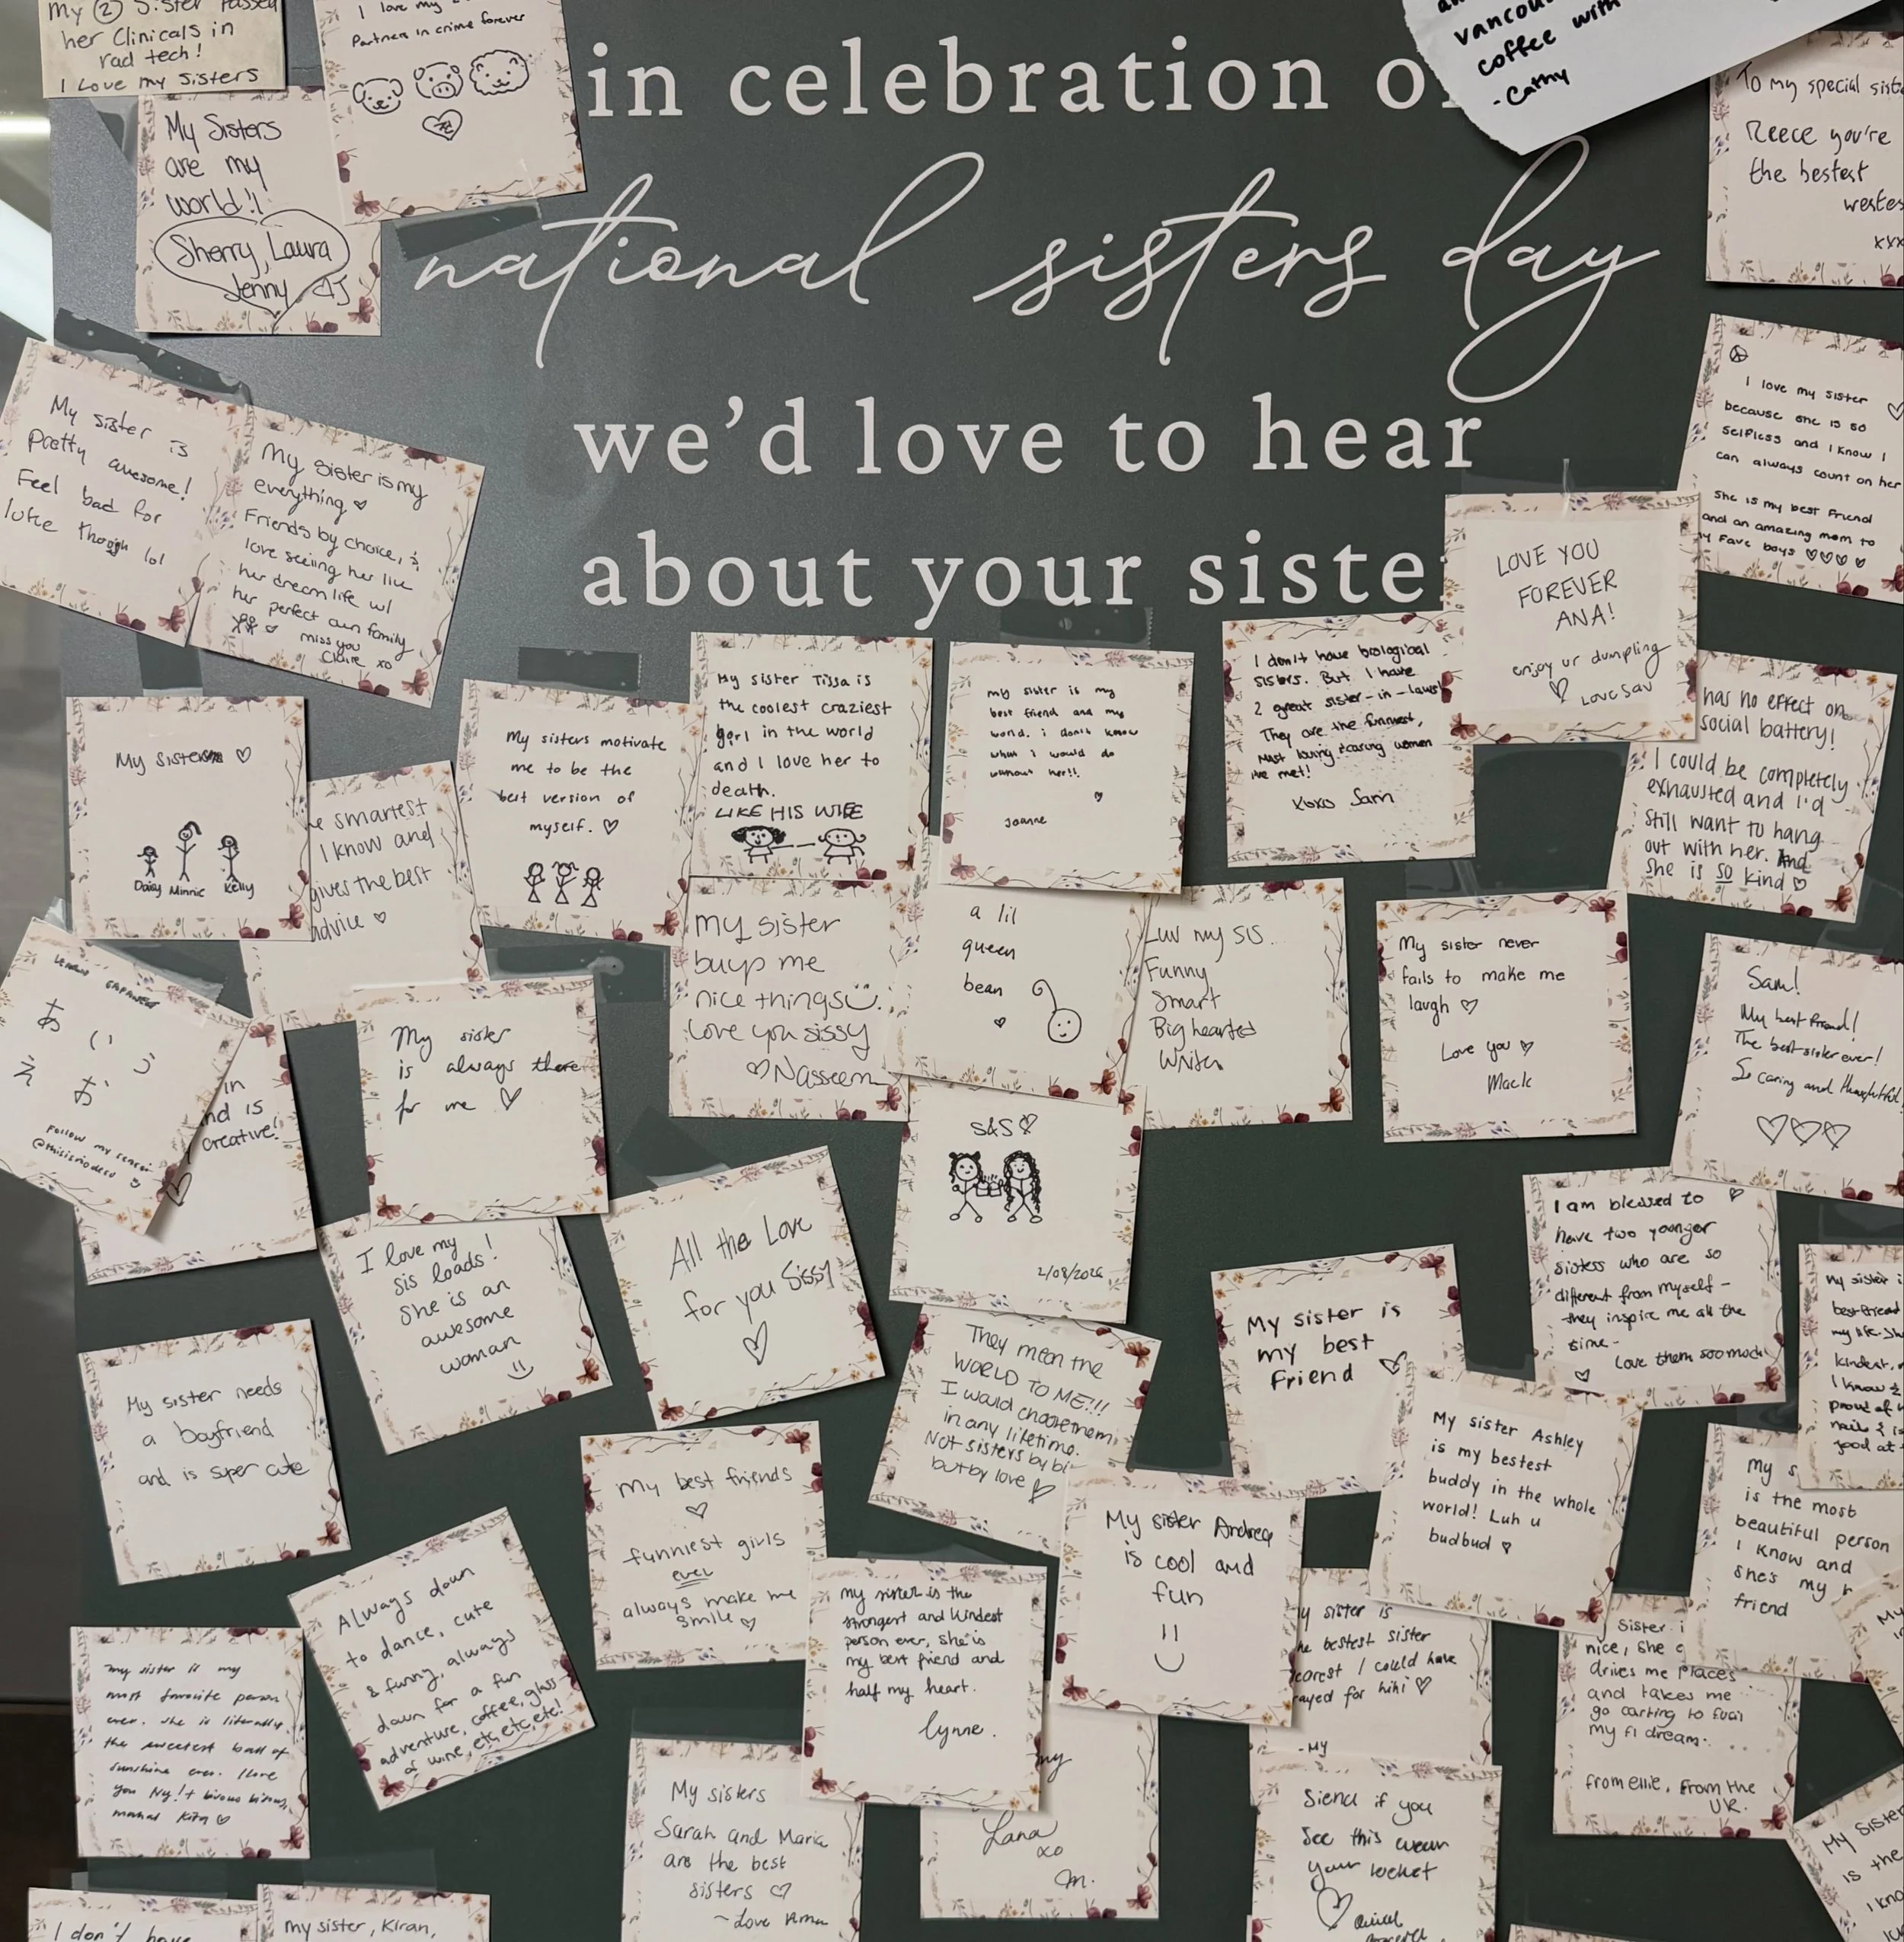 in celebration of
national sisters day
we'd love to hear
about your sister
my 2 Sister passed
her clinicals in
rad tech!
I Love my sisters
I love my
Partners in crime forever
vancou
coffee with
-Cathy
To my special sist
Reece you're
the bestest
westes
xxx
My Sisters
are my
world!!
Sherry, Laura
Jenny
My sister is
pretty awesome!
Feel bad for
luke though lol
My sister is my
everything ♡
Friends by choice, &
love seeing her live
her dream life w/
her perfect own family
miss you
Claire xo
I love my sister
because she is so
selfless and I know I
can always count on her
She is my best friend
and an amazing mom to
my fave boys ♡♡♡♡
LOVE YOU
FOREVER
ANA!
enjoy ur dumpling
♡ Love Sav
My sisters ♡
Daisy Minnie Kelly
e smartest
I know and
gives the best
advice ♡
My sisters motivate
me to be the
best version of
myself. ♡
My sister Tissa is
the coolest craziest
girl in the world
and I love her to
death.
LIKE HIS WIFE
my sister is my
best friend and my
world. i don't know
what i would do
without her!!
♡
Joanne
I don't have biological
sisters. But I have
2 great sister-in-laws!
They are the funniest,
most loving & caring women
ive met!
xoxo Sam
has no effect on
social battery!
I could be completely
exhausted and I'd
still want to hang
out with her. And
she is so kind ♡
あ い う
え お
Follow my sensei
in
nd is
creative!
My sister
is always there
for me ♡
my sister
buys me
nice things
love you sissy
♡ Nasseem
a lil
queen
bean
♡
Luv my sis
Funny
Smart
Big hearted
Writer
My sister never
fails to make me
laugh ♡
Love you ♡
Mack
Sam!
My best friend!
The best sister ever!
So caring and thoughtful
♡♡♡
I love my
sis loads!
She is an
awesome
woman
All the Love
for you Sissy
♡
S&S ♡
2/08/2026
I am blessed to
have two younger
sisters who are so
different from myself -
they inspire me all the
time -
♡ Love them soo much
My sister i
best friend
my life. Sh
kindest,
I know &
proud of
nails & is
good at
My sister needs
a boyfriend
and is super cute
They mean the
WORLD TO ME!!!
I would choose them
in any lifetime.
Not sisters by bi
but by love ♡
My sister is
my best
friend ♡
My sister Ashley
is my bestest
buddy in the whole
world! Luh u
budbud ♡
My s
is the most
beautiful person
I know and
she's my
friend
My best friends
♡
funniest girls
ever
always make me
smile ♡
Always down
to dance, cute
& funny, always
down for a fun
adventure, coffee, glass
of wine, etc, etc, etc!
my sister is the
strongest and kindest
person ever, she is
my best friend and
half my heart.
lynne.
My sister Andrea
is cool and
fun
y sister is
he bestest sister
earest I could have
rayed for hihi ♡
-My
Sister i
nice, she
drives me places
and takes me
go carting to fuel
my f1 dream.
from ellie, from the
UK.
my sister is my
most favorite person
ever. she is literally
the sweetest ball of
sunshine ever. I love
you Ny!
mahal
My sisters
Sarah and Maria
are the best
sisters ♡
~Love
my
Lana
xo
m.
Siena if you
see this wear
your locket
♡
My sister
is the
I kno
I don't have
my sister, Kiran,